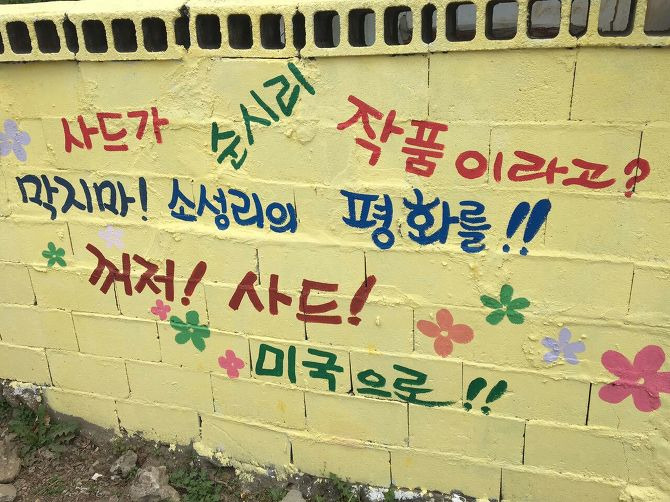 사드가 순시리 작품이라고?
막지마! 소성리의 평화를!!
꺼져! 사드!
미국으로!!